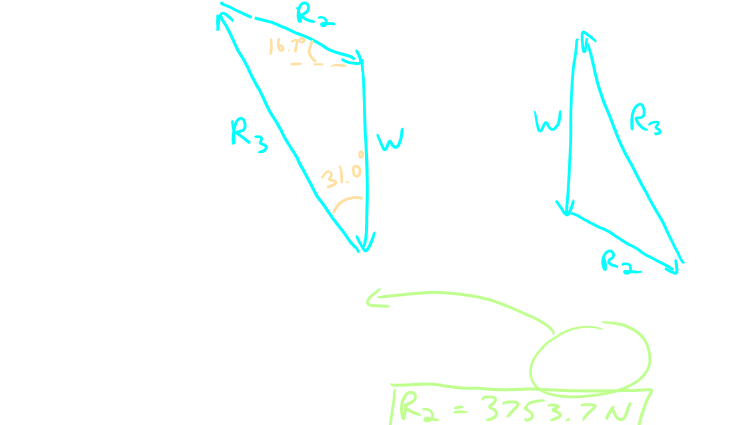 R2
16.7°
R3
W
31.0°
W
R3
R2
R2 = 3753.7 N